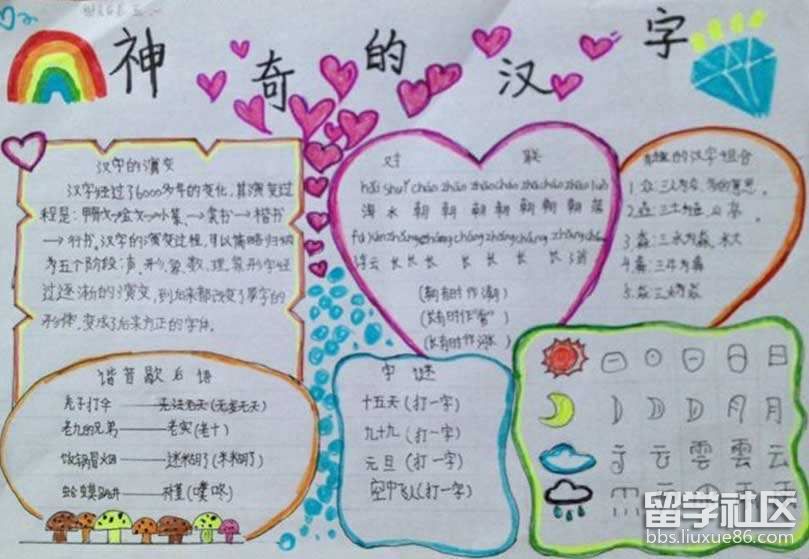 神奇的汉字
汉字的演变
汉字经过了6000多年的变化,其演变过
程是:甲骨文→金文→小篆→隶书→楷书
→行书。汉字的演变过程,可以简略归纳
为五个阶段:声、形、象、数、理。象形字经
过逐渐的演变,到后来都改变了单字的
形体,变成了后来方正的字体。
谐音歇后语
秃子打伞——无法无天(无发无天)
老九的兄弟——老实(老十)
饭锅冒烟——迷糊了(米糊了)
蛤蟆跳井——不懂(噗咚)
对联
hǎi shuǐ cháo zhāo zhāo cháo zhāo cháo zhāo luò
海水朝朝朝朝朝朝朝落
fú yún zhǎng cháng cháng zhǎng cháng zhǎng cháng
浮云长长长长长长长消
(朝有时作潮)
(长有时作"常")
(长有时作涨)
的汉字组合
1.众:三人为众,多的意思。
2.垚:三土为垚,山高。
3.淼:三水为淼,水大
4.犇:三牛为犇
字谜
十五天(打一字)
九十九(打一字)
元旦(打一字)
空中飞人(打一字)
日
月
雲 雲 云
留学社区
bbs.liuxue86.com